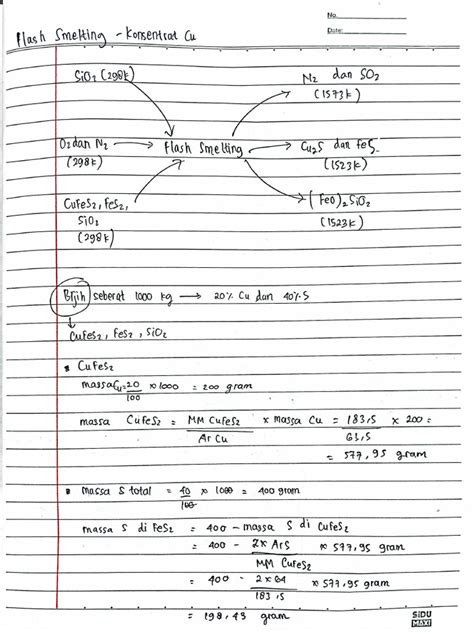 No.
Date:
Flash Smelting - Konsentrat Cu
SiO2 (298k)
N2 dan SO2
(1573k)
O2 dan N2 → Flash Smelting → Cu2S dan FeS
(298k)
(1523k)
CuFeS2, FeS2,
SiO2
(298k)
(FeO)2 SiO2
(1523k)
Bijih seberat 1000 kg → 20% Cu dan 40% S
↓
CuFeS2, FeS2, SiO2
• CuFeS2
massa Cu = 20/100 x 1000 = 200 gram
massa CuFeS2 = MM CuFeS2/Ar Cu x massa Cu = 183,5/63,5 x 200 =
= 577,95 gram
• Massa S total = 40/100 x 1000 = 400 gram
massa S di FeS2 = 400 - massa S di CuFeS2
= 400 - 2x Ar S/MM CuFeS2 x 577,95 gram
= 400 - 2 x 64/183,5 x 577,95 gram
= 198,43 gram
SiDU
MAXI